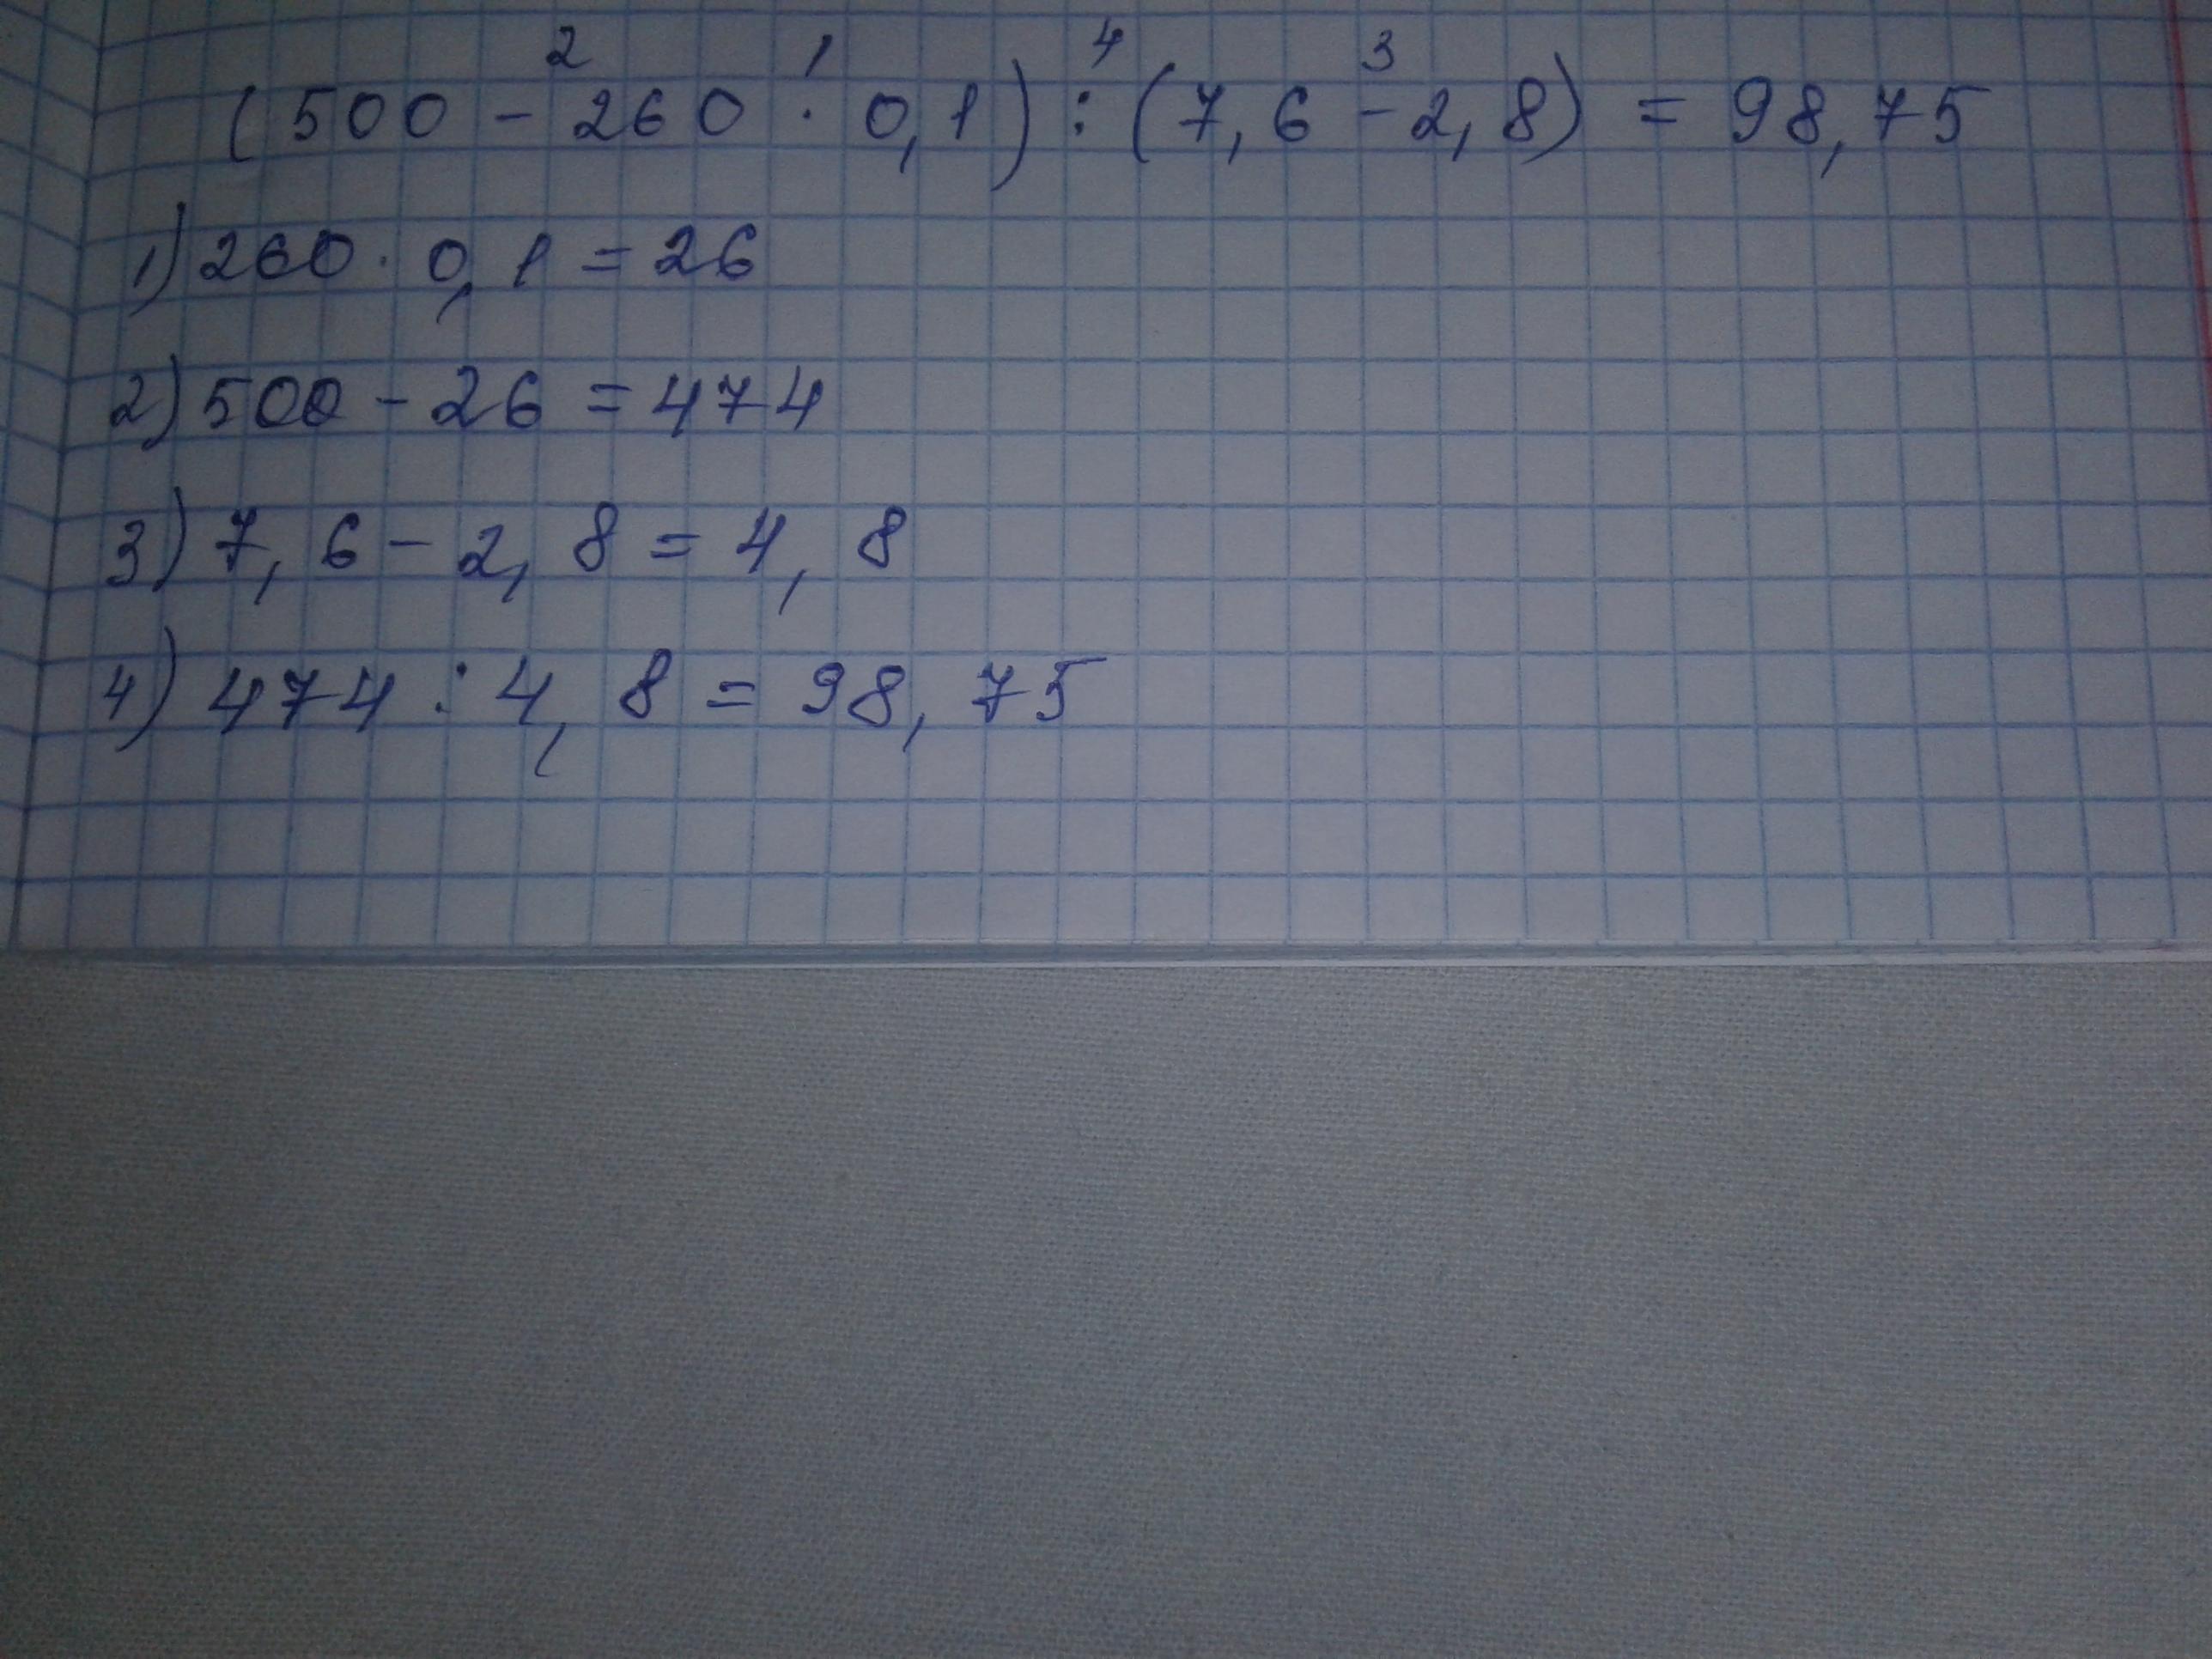 2 1 4 3
(500 - 260 · 0,1) : (7,6 - 2,8) = 98,75
1) 260 · 0,1 = 26
2) 500 - 26 = 474
3) 7,6 - 2,8 = 4,8
4) 474 : 4,8 = 98,75